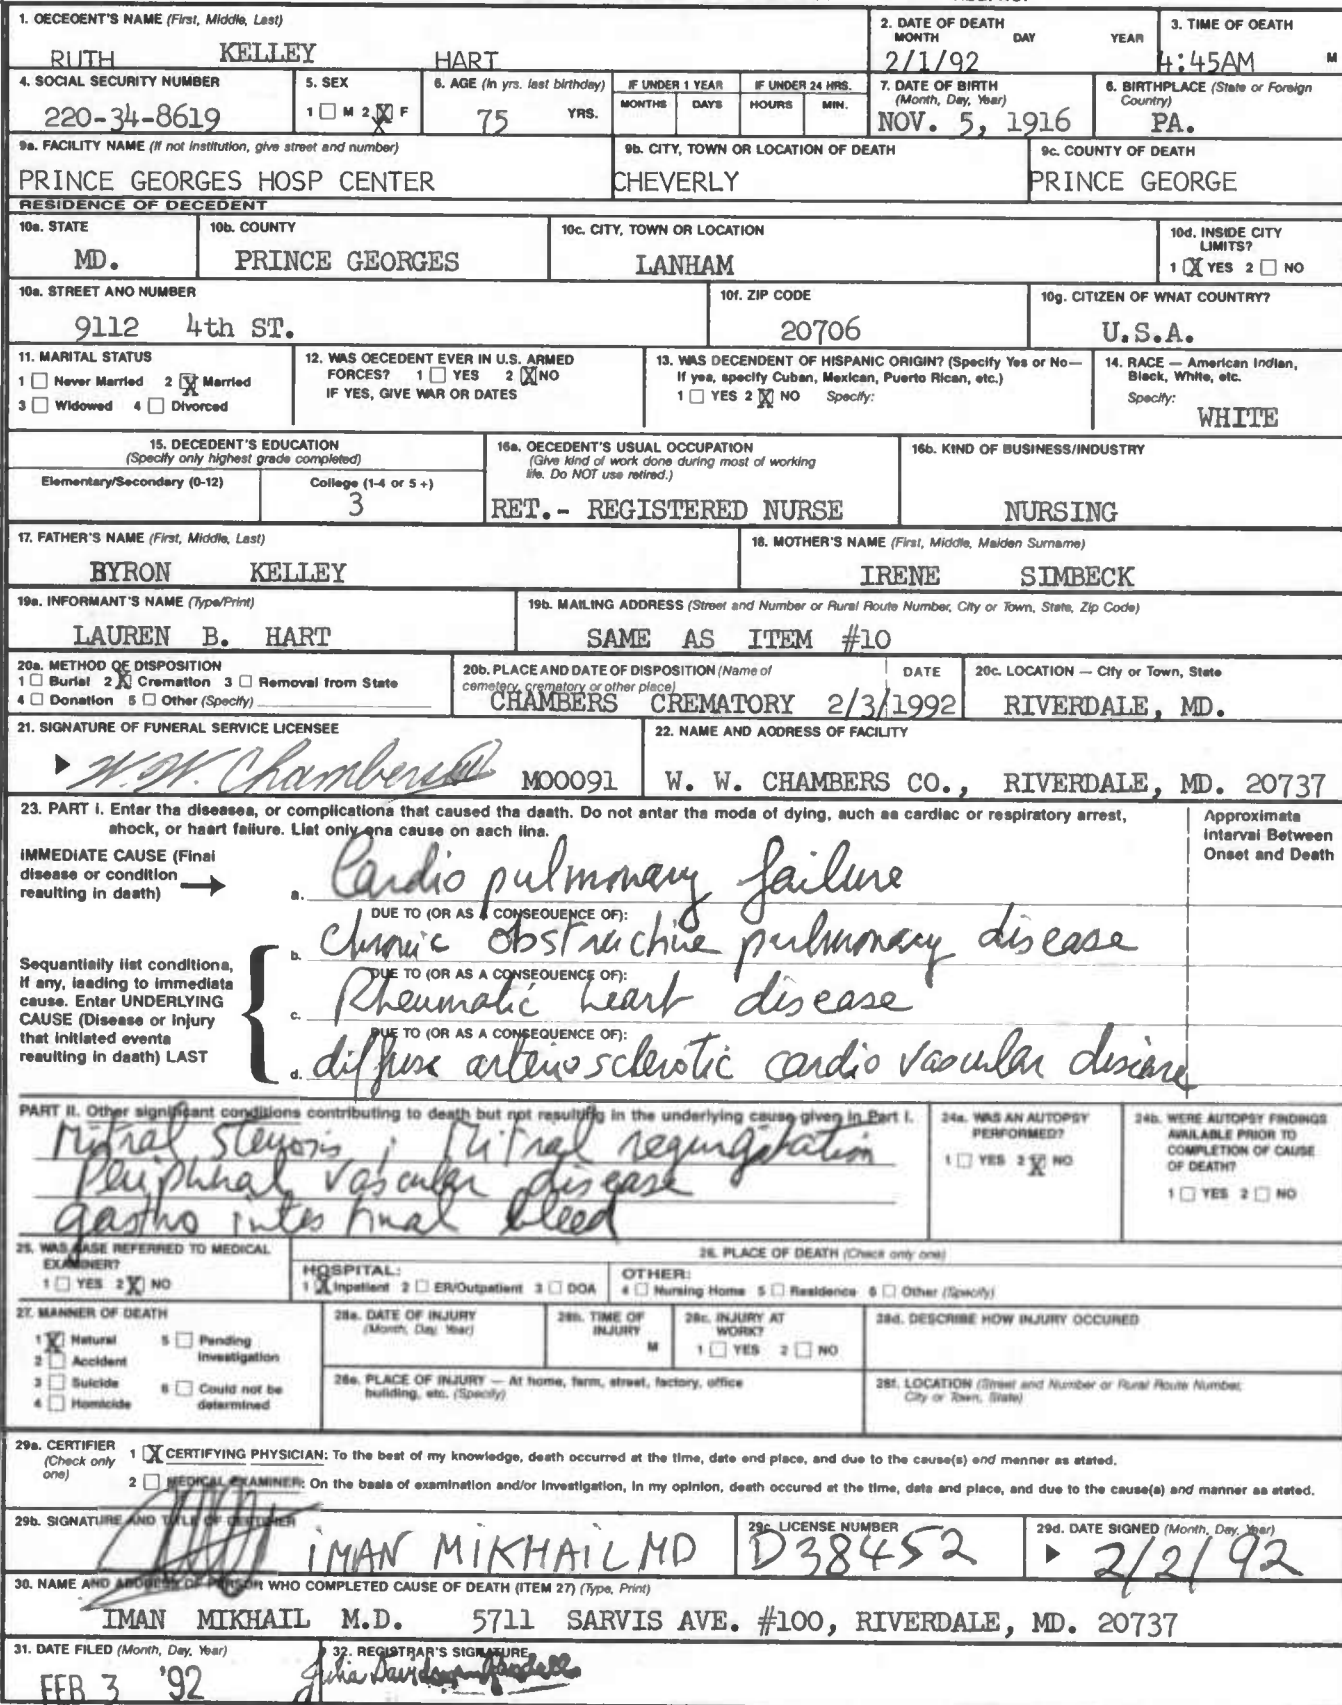 1. DECEDENT'S NAME (First, Middle, Last)
RUTH KELLEY HART
2. DATE OF DEATH
MONTH DAY YEAR
2/1/92
3. TIME OF DEATH
4:45AM M
4. SOCIAL SECURITY NUMBER
220-34-8619
5. SEX
1 ☐ M 2 ☒ F
6. AGE (In yrs. last birthday)
75 YRS.
IF UNDER 1 YEAR
MONTHS DAYS
IF UNDER 24 HRS.
HOURS MIN.
7. DATE OF BIRTH
(Month, Day, Year)
NOV. 5, 1916
8. BIRTHPLACE (State or Foreign
Country)
PA.
9a. FACILITY NAME (If not institution, give street and number)
PRINCE GEORGES HOSP CENTER
9b. CITY, TOWN OR LOCATION OF DEATH
CHEVERLY
9c. COUNTY OF DEATH
PRINCE GEORGE
RESIDENCE OF DECEDENT
10a. STATE
MD.
10b. COUNTY
PRINCE GEORGES
10c. CITY, TOWN OR LOCATION
LANHAM
10d. INSIDE CITY
LIMITS?
1 ☒ YES 2 ☐ NO
10e. STREET AND NUMBER
9112 4th ST.
10f. ZIP CODE
20706
10g. CITIZEN OF WHAT COUNTRY?
U.S.A.
11. MARITAL STATUS
1 ☐ Never Married 2 ☒ Married
3 ☐ Widowed 4 ☐ Divorced
12. WAS DECEDENT EVER IN U.S. ARMED
FORCES? 1 ☐ YES 2 ☒ NO
IF YES, GIVE WAR OR DATES
13. WAS DECENDENT OF HISPANIC ORIGIN? (Specify Yes or No—
If yes, specify Cuban, Mexican, Puerto Rican, etc.)
1 ☐ YES 2 ☒ NO Specify:
14. RACE — American Indian,
Black, White, etc.
Specify:
WHITE
15. DECEDENT'S EDUCATION
(Specify only highest grade completed)
Elementary/Secondary (0-12) College (1-4 or 5+)
3
16a. DECEDENT'S USUAL OCCUPATION
(Give kind of work done during most of working
life. Do NOT use retired.)
RET.- REGISTERED NURSE
16b. KIND OF BUSINESS/INDUSTRY
NURSING
17. FATHER'S NAME (First, Middle, Last)
BYRON KELLEY
18. MOTHER'S NAME (First, Middle, Maiden Surname)
IRENE SIMBECK
19a. INFORMANT'S NAME (Type/Print)
LAUREN B. HART
19b. MAILING ADDRESS (Street and Number or Rural Route Number, City or Town, State, Zip Code)
SAME AS ITEM #10
20a. METHOD OF DISPOSITION
1 ☐ Burial 2 ☒ Cremation 3 ☐ Removal from State
4 ☐ Donation 5 ☐ Other (Specify)
20b. PLACE AND DATE OF DISPOSITION (Name of
cemetery, crematory or other place) DATE
CHAMBERS CREMATORY 2/3/1992
20c. LOCATION — City or Town, State
RIVERDALE, MD.
21. SIGNATURE OF FUNERAL SERVICE LICENSEE
W.W. Chambers M00091
22. NAME AND ADDRESS OF FACILITY
W. W. CHAMBERS CO., RIVERDALE, MD. 20737
23. PART I. Enter the diseases, or complications that caused the death. Do not enter the mode of dying, such as cardiac or respiratory arrest,
shock, or heart failure. List only one cause on each line.
Approximate
Interval Between
Onset and Death
IMMEDIATE CAUSE (Final
disease or condition
resulting in death)
a. Cardio pulmonary failure
DUE TO (OR AS A CONSEQUENCE OF):
b. Chronic obstructive pulmonary disease
DUE TO (OR AS A CONSEQUENCE OF):
Sequentially list conditions,
if any, leading to immediate
cause. Enter UNDERLYING
CAUSE (Disease or injury
that initiated events
resulting in death) LAST
c. Rheumatic heart disease
DUE TO (OR AS A CONSEQUENCE OF):
d. diffuse arteriosclerotic cardio vascular disease
PART II. Other significant conditions contributing to death but not resulting in the underlying cause given in Part I.
Mitral stenosis ; Mitral regurgitation
Peripheral vascular disease
gastro intestinal bleed
24a. WAS AN AUTOPSY
PERFORMED?
1 ☐ YES 2 ☒ NO
24b. WERE AUTOPSY FINDINGS
AVAILABLE PRIOR TO
COMPLETION OF CAUSE
OF DEATH?
1 ☐ YES 2 ☐ NO
25. WAS CASE REFERRED TO MEDICAL
EXAMINER?
1 ☐ YES 2 ☒ NO
26. PLACE OF DEATH (Check only one)
HOSPITAL:
1 ☒ Inpatient 2 ☐ ER/Outpatient 3 ☐ DOA
OTHER:
4 ☐ Nursing Home 5 ☐ Residence 6 ☐ Other (Specify)
27. MANNER OF DEATH
1 ☒ Natural 5 ☐ Pending
Investigation
2 ☐ Accident
3 ☐ Suicide 6 ☐ Could not be
determined
4 ☐ Homicide
28a. DATE OF INJURY
(Month, Day, Year)
28b. TIME OF
INJURY
M
28c. INJURY AT
WORK?
1 ☐ YES 2 ☐ NO
28d. DESCRIBE HOW INJURY OCCURED
28e. PLACE OF INJURY — At home, farm, street, factory, office
building, etc. (Specify)
28f. LOCATION (Street and Number or Rural Route Number,
City or Town, State)
29a. CERTIFIER
(Check only
one)
1 ☒ CERTIFYING PHYSICIAN: To the best of my knowledge, death occurred at the time, date and place, and due to the cause(s) and manner as stated.
2 ☐ MEDICAL EXAMINER: On the basis of examination and/or investigation, in my opinion, death occured at the time, date and place, and due to the cause(s) and manner as stated.
29b. SIGNATURE AND TITLE OF CERTIFIER
IMAN MIKHAIL MD
29c. LICENSE NUMBER
D38452
29d. DATE SIGNED (Month, Day, Year)
2/2/92
30. NAME AND ADDRESS OF PERSON WHO COMPLETED CAUSE OF DEATH (ITEM 27) (Type, Print)
IMAN MIKHAIL M.D. 5711 SARVIS AVE. #100, RIVERDALE, MD. 20737
31. DATE FILED (Month, Day, Year)
FEB 3 '92
32. REGISTRAR'S SIGNATURE
Julia Davidson-Randall